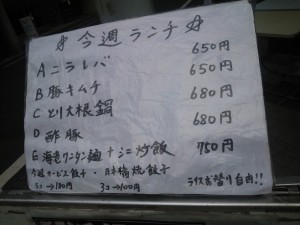 ☆今週ランチ☆
Aニラレバ 650円
B豚キムチ 650円
Cとり大根鍋 680円
D酢豚 680円
E海老ワンタン麺+ミニ炒飯 750円
今週サービス餃子・日本橋焼餃子
5コ→180円 3コ→100円 ライスお替り自由!!